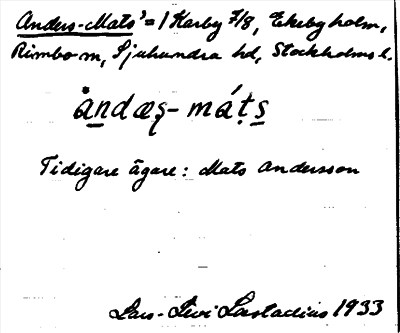 Anders-Mats' = 1 Karby 7/8, Ekebyholm,
Rimbo sn, Sjuhundra hd, Stockholms l.
ändæș- máṭs
Tidigare ägare: Mats Andersson
Lars-Levi Læstadius 1933